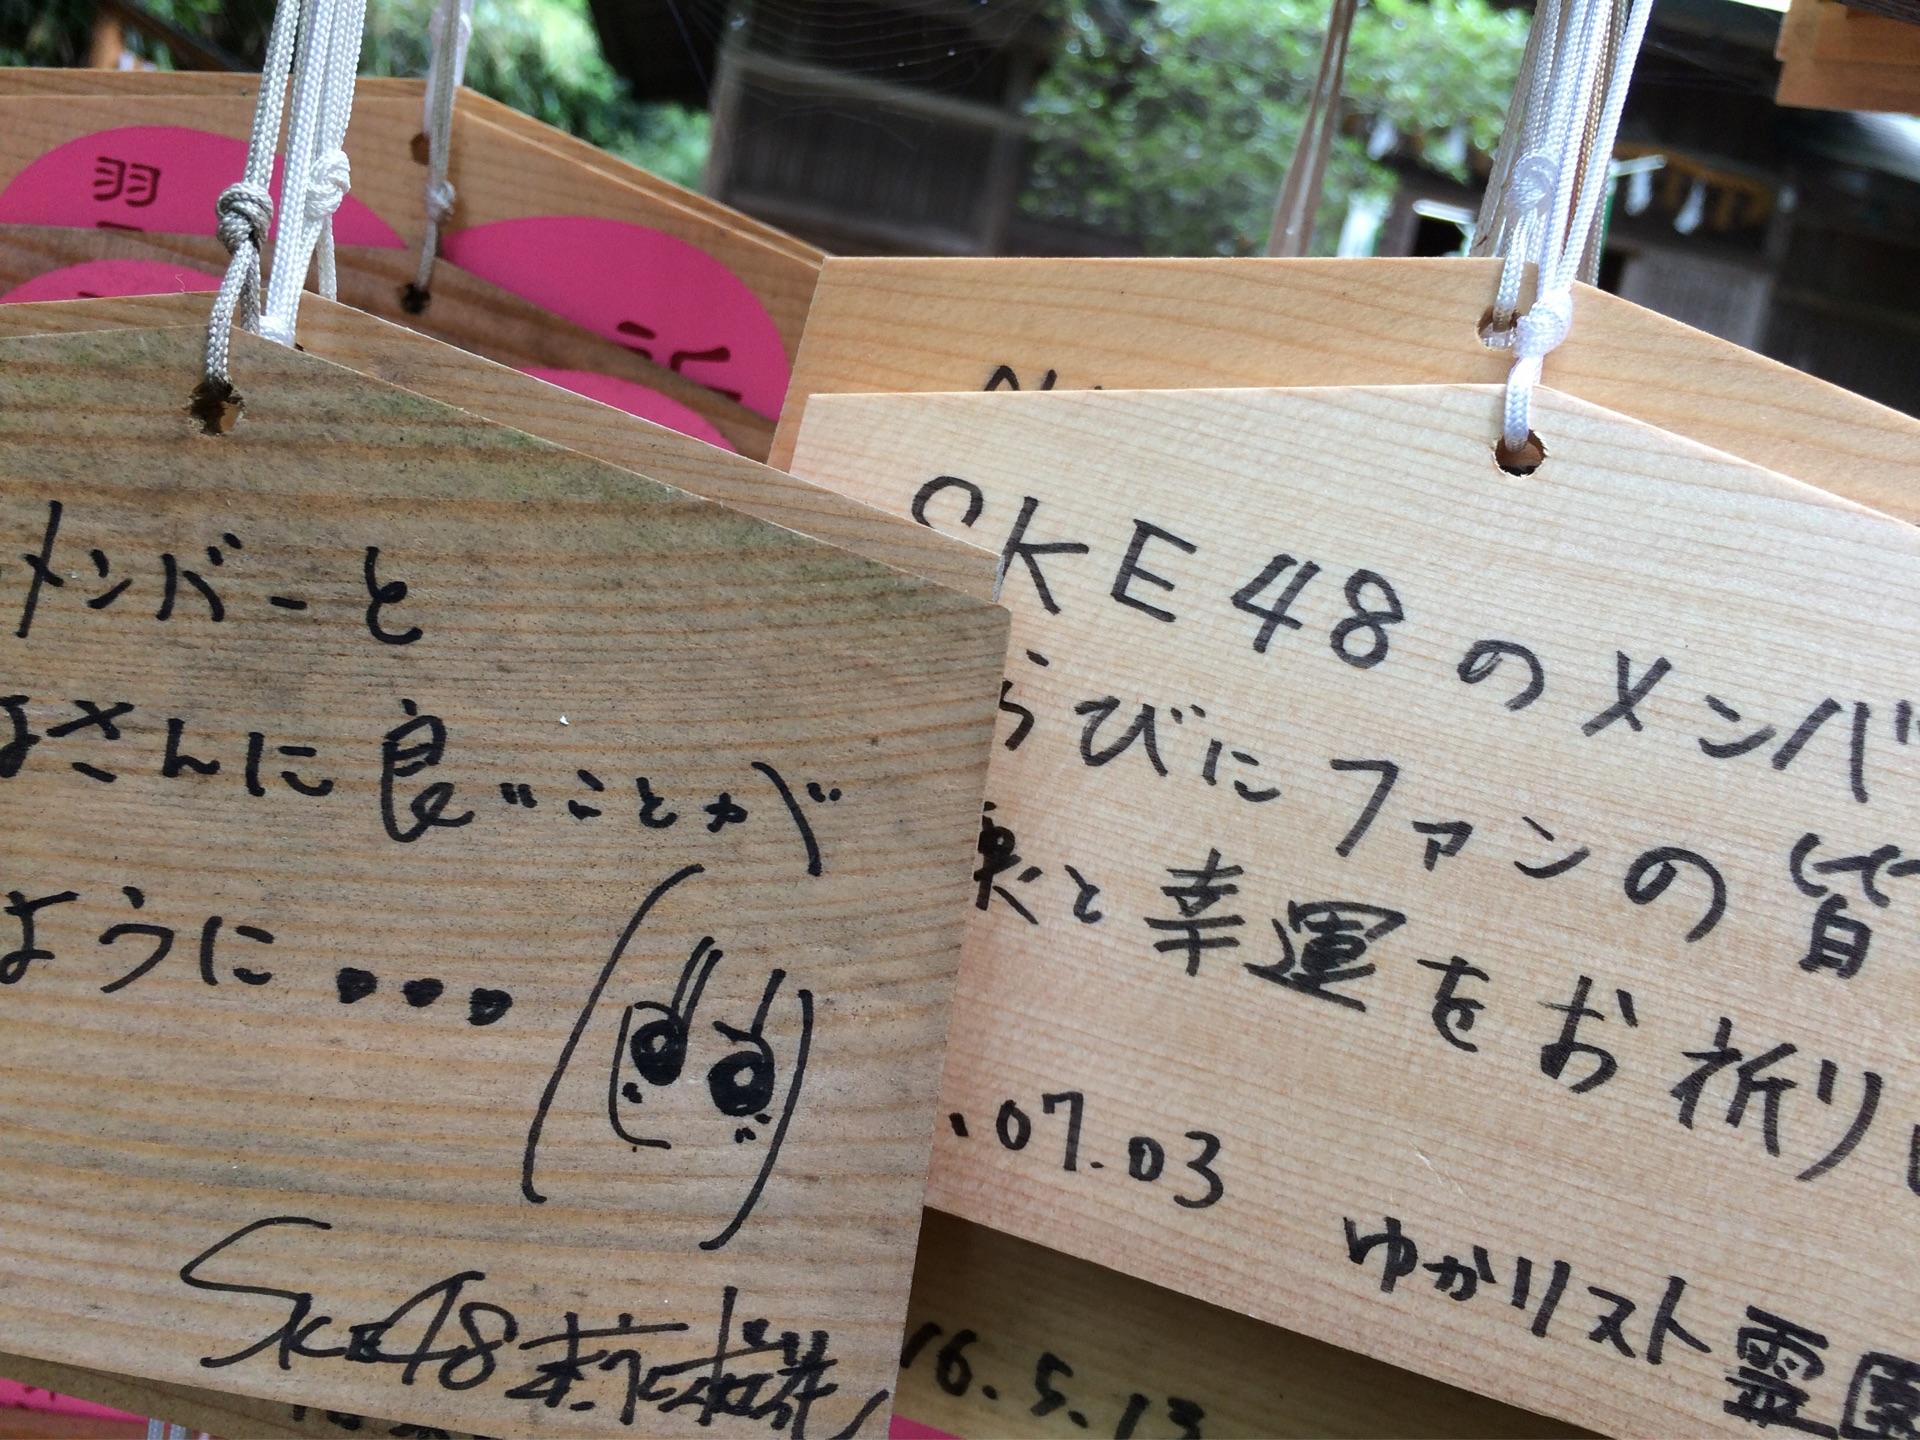 羽
メンバーと
さんに良いことが
ように...
SKE48
SKE48のメンバ
らびにファンの皆
と幸運をお祈りし
.07.03
ゆかリスト霊園
16.5.13